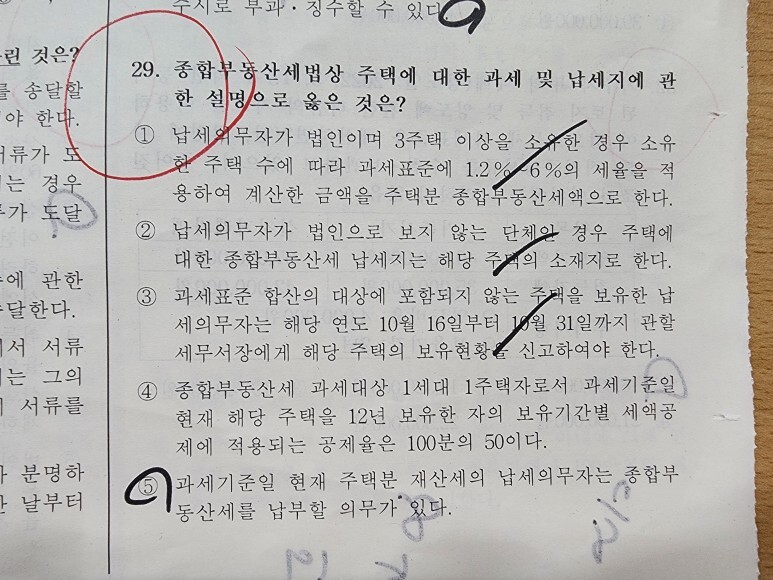 수시로 부과·징수할 수 있다.
린 것은?
를 송달할
야 한다.
서류가 도
는 경우
가 도달
에 관한
달한다.
서 서류
는 그의
서류를
분명하
날부터
29. 종합부동산세법상 주택에 대한 과세 및 납세지에 관
한 설명으로 옳은 것은?
① 납세의무자가 법인이며 3주택 이상을 소유한 경우 소유
한 주택 수에 따라 과세표준에 1.2%~6%의 세율을 적
용하여 계산한 금액을 주택분 종합부동산세액으로 한다.
② 납세의무자가 법인으로 보지 않는 단체인 경우 주택에
대한 종합부동산세 납세지는 해당 주택의 소재지로 한다.
③ 과세표준 합산의 대상에 포함되지 않는 주택을 보유한 납
세의무자는 해당 연도 10월 16일부터 10월 31일까지 관할
세무서장에게 해당 주택의 보유현황을 신고하여야 한다.
④ 종합부동산세 과세대상 1세대 1주택자로서 과세기준일
현재 해당 주택을 12년 보유한 자의 보유기간별 세액공
제에 적용되는 공제율은 100분의 50이다.
⑤ 과세기준일 현재 주택분 재산세의 납세의무자는 종합부
동산세를 납부할 의무가 있다.